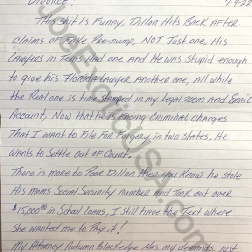 Divorce!
This shit is Funny. Dillon Hits Back After
claims of Fake Pre-nump, NOT Just one, His
Lawyers in Texas Had one and He was Stupid enough
to give his Florida Lawyer Another one, All while
the Real one is time stamped in my legal zoom and Email
Account. Now that he is facing Criminal charges
That I want to File For Forgery in two States, He
Wants to Settle out of Court.
There is more do Dillon that you know he stole
His Moms Social Security number and took out over
$15,000 in School loans, I still have the Text where
She wanted me to Pay it!
My Attorney Autumn has my demands, just